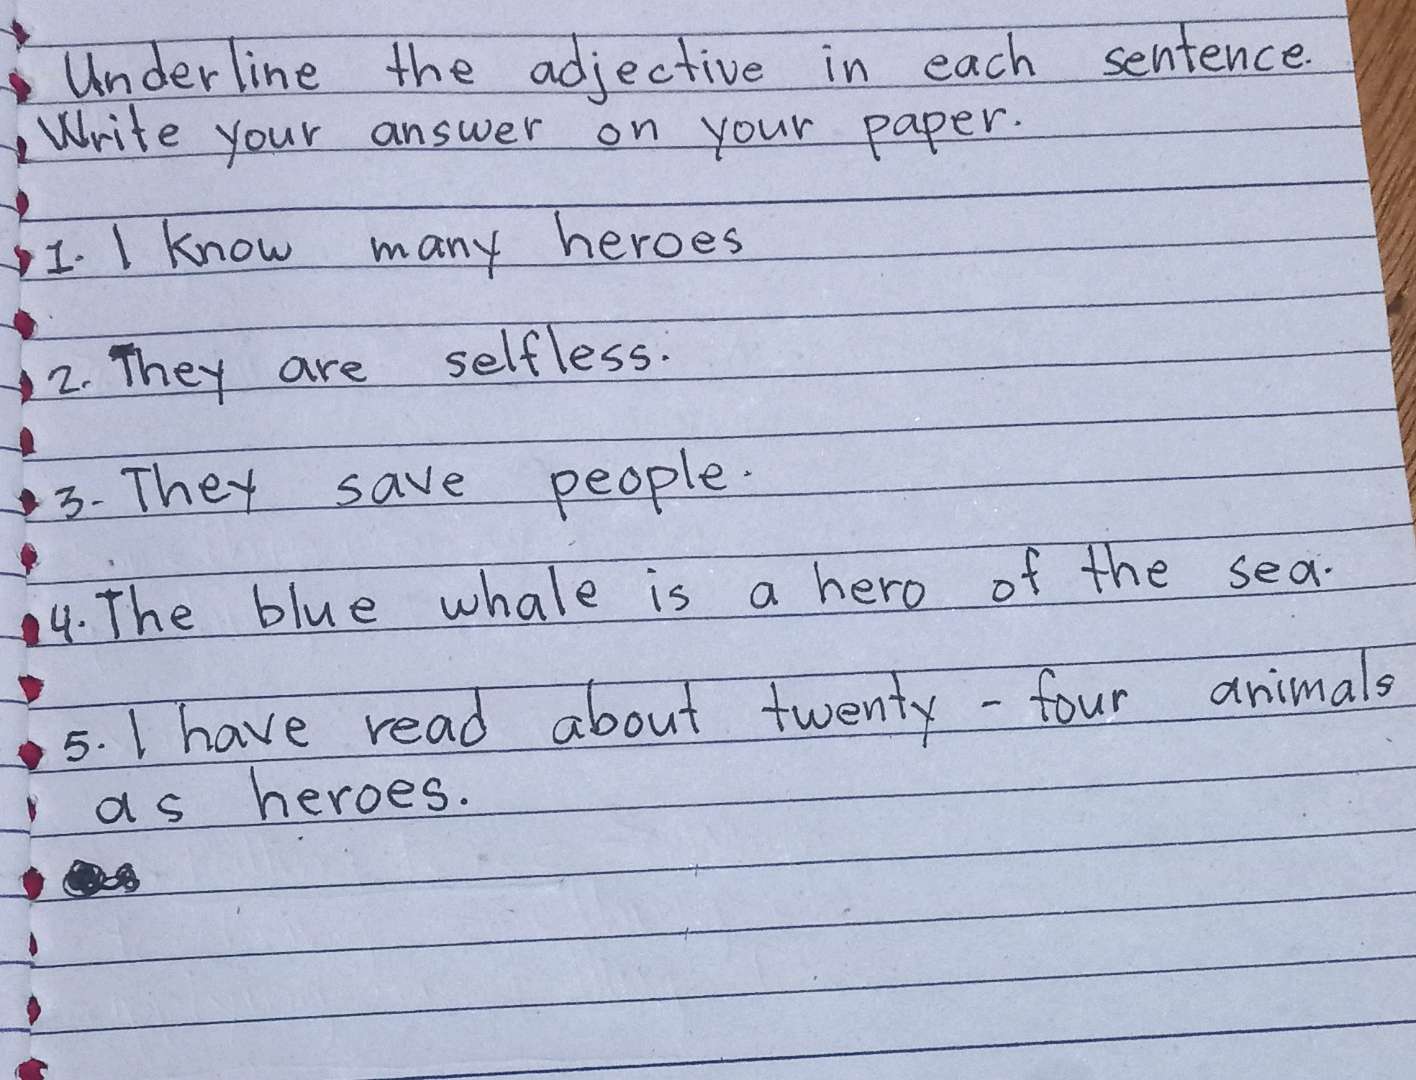 Underline the adjective in each sentence.
Write your answer on your paper.
1. I know many heroes
2. They are selfless.
3- They save people.
4. The blue whale is a hero of the sea.
5. I have read about twenty - four animals
as heroes.